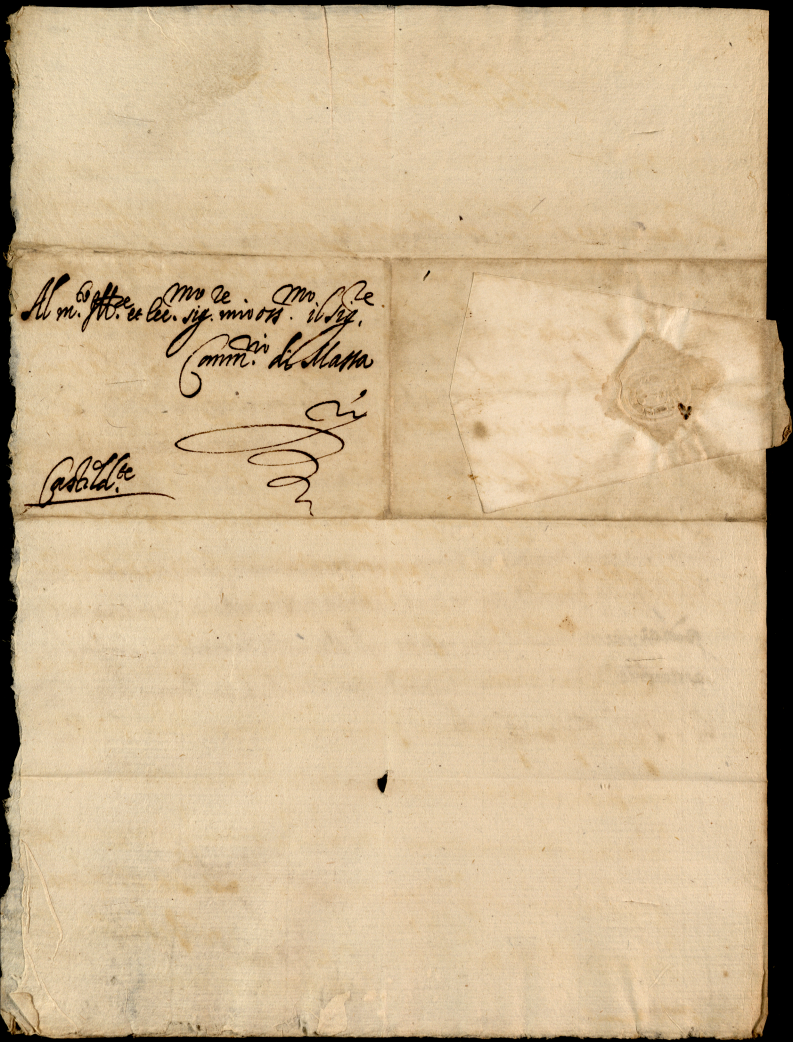 Al m.to Ill.re et Ecc.mo sig.re mio oss.mo il Sig.re
Comm.rio di Massa
Castild.te